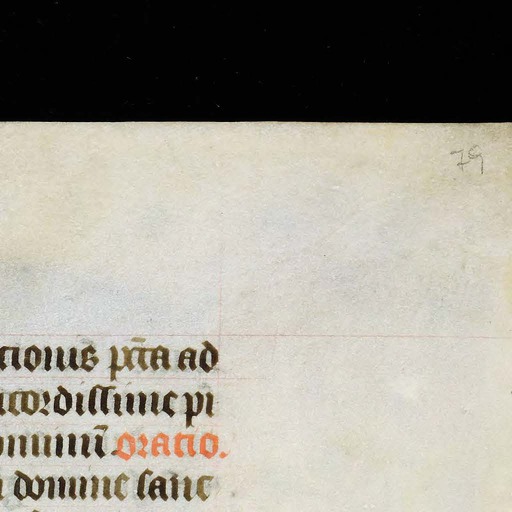 79
cionis xp̄ta ad
icordissime pi
ominū oratio.
domine sanc